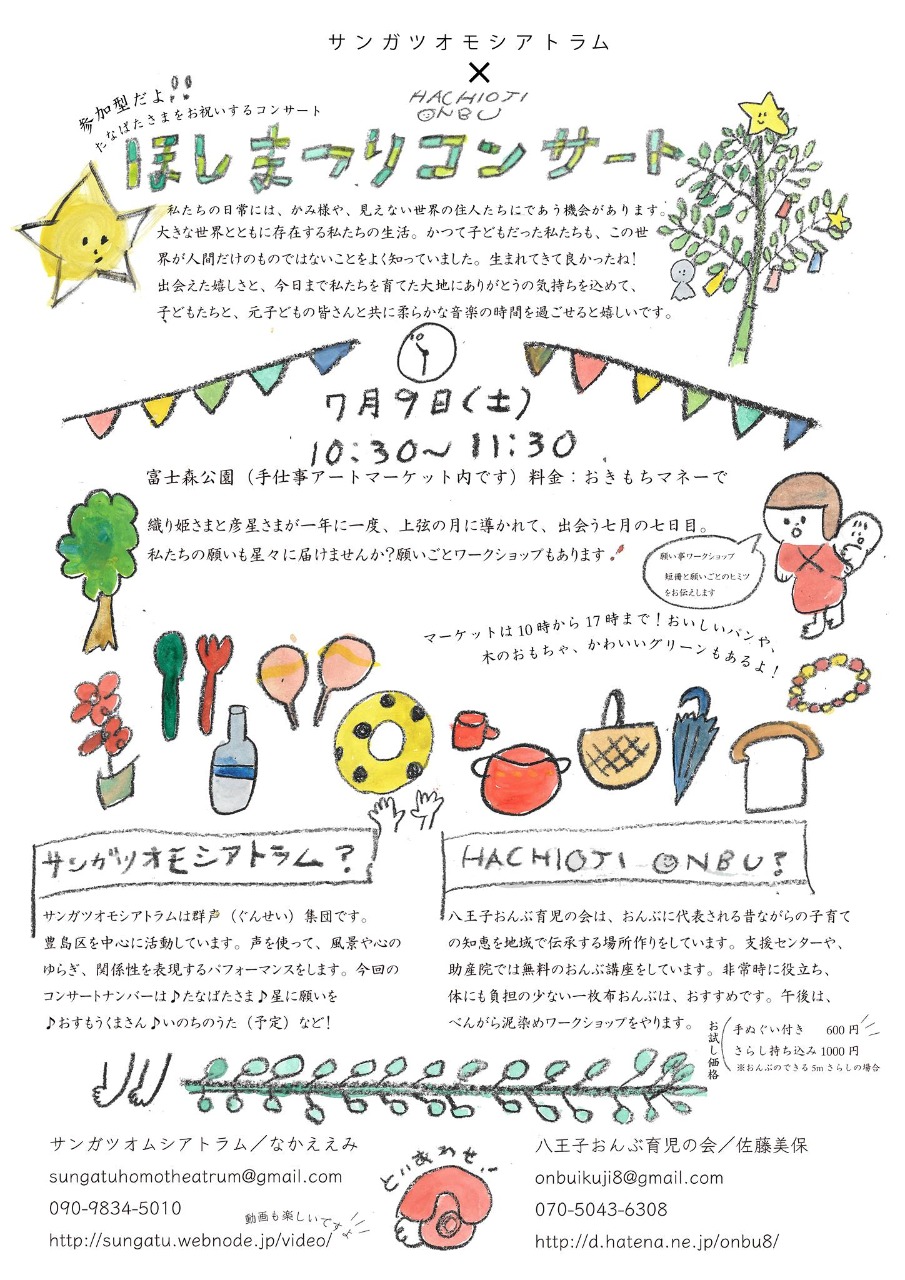 サンガツオモシアトラム
×
HACHIOJI
ONBU
参加型だよ!!
たなばたさまをお祝いするコンサート
ほしまつりコンサート
私たちの日常には、かみ様や、見えない世界の住人たちにであう機会があります。
大きな世界とともに存在する私たちの生活。かつて子どもだった私たちも、この世
界が人間だけのものではないことをよく知っていました。生まれてきて良かったね!
出会えた嬉しさと、今日まで私たちを育てた大地にありがとうの気持ちを込めて、
子どもたちと、元子どもの皆さんと共に柔らかな音楽の時間を過ごせると嬉しいです。
7月9日(土)
10:30~11:30
富士森公園(手仕事アートマーケット内です)料金:おきもちマネーで
織り姫さまと彦星さまが一年に一度、上弦の月に導かれて、出会う七月の七日目。
私たちの願いも星々に届けませんか?願いごとワークショップもあります!
願い事ワークショップ
短冊と願いごとのヒミツ
をお伝えします
マーケットは10時から17時まで!おいしいパンや、
木のおもちゃ、かわいいグリーンもあるよ!
サンガツオモシアトラム?
サンガツオモシアトラムは群声(ぐんせい)集団です。
豊島区を中心に活動しています。声を使って、風景や心の
ゆらぎ、関係性を表現するパフォーマンスをします。今回の
コンサートナンバーは♪たなばたさま♪星に願いを
♪おすもうくまさん♪いのちのうた(予定)など!
HACHIOJI ONBU?
八王子おんぶ育児の会は、おんぶに代表される昔ながらの子育て
の知恵を地域で伝承する場所作りをしています。支援センターや、
助産院では無料のおんぶ講座をしています。非常時に役立ち、
体にも負担の少ない一枚布おんぶは、おすすめです。午後は、
べんがら泥染めワークショップをやります。
お試し価格
手ぬぐい付き 600円
さらし持ち込み1000円
※おんぶのできる5mさらしの場合
サンガツオムシアトラム/なかええみ
sungatuhomotheatrum@gmail.com
090-9834-5010
動画も楽しいですよ
http://sungatu.webnode.jp/video/
といあわせ!
八王子おんぶ育児の会/佐藤美保
onbuikuji8@gmail.com
070-5043-6308
http://d.hatena.ne.jp/onbu8/